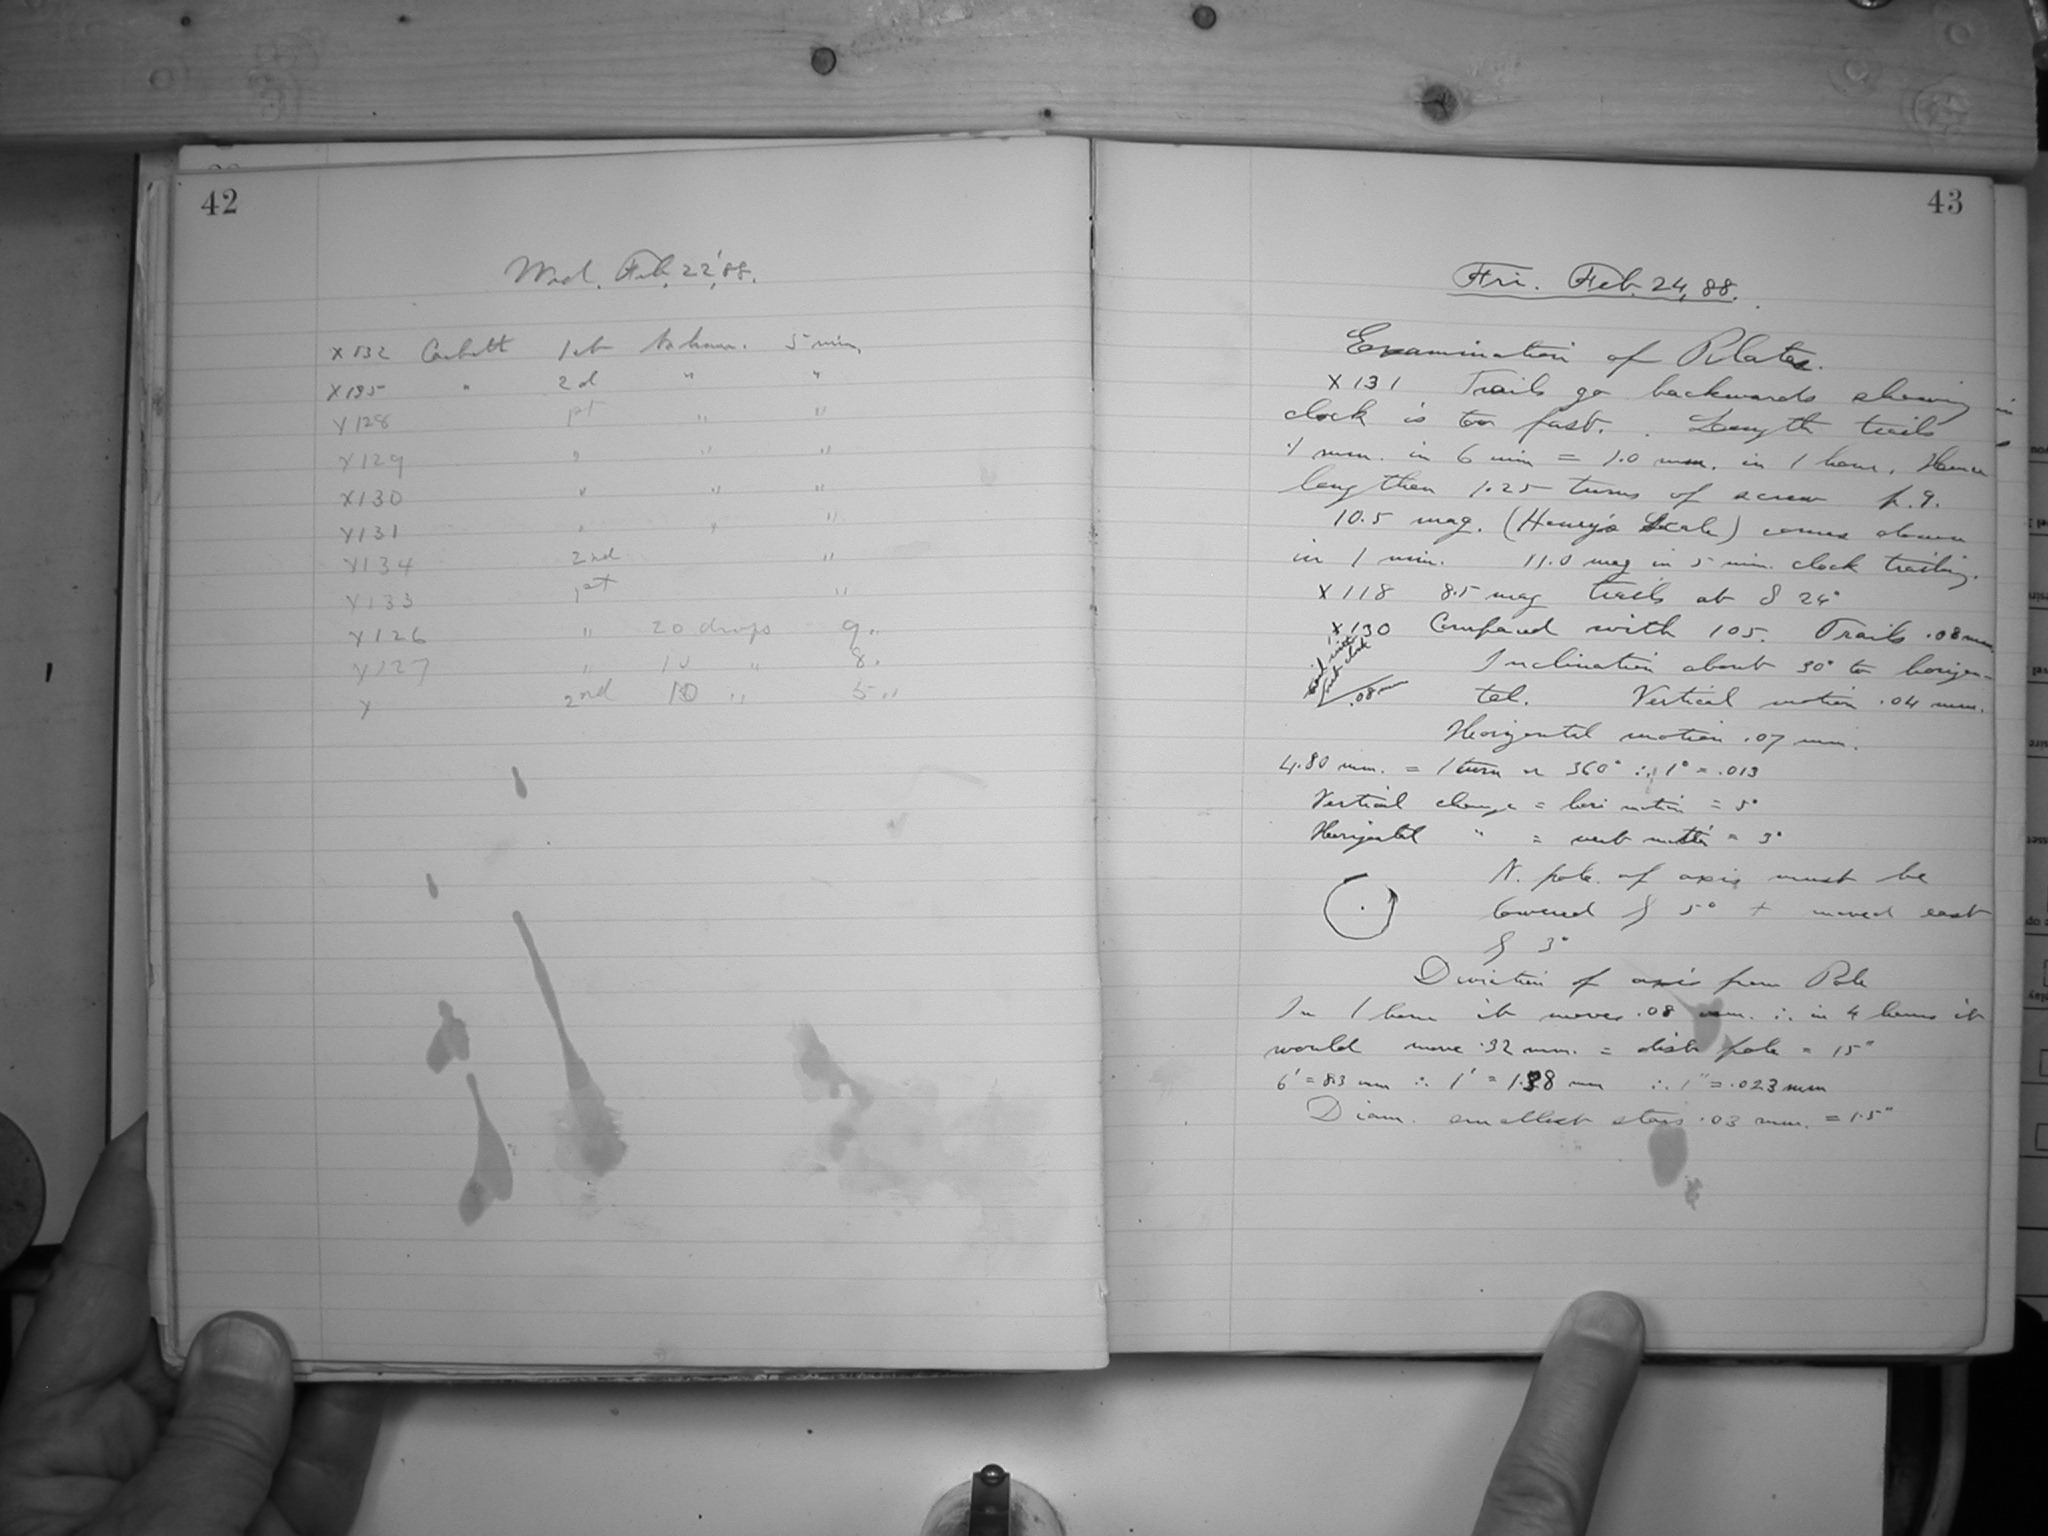 42
Wed. Feb. 22, '88.
X 132 Corbett 1st No ham. 5 min.
X 135 " 2d " "
Y 128 1st " "
Y 129 " " "
X 130 " " "
Y 131 " " "
Y 134 2nd "
Y 133 1st "
X 126 " 20 drops 9 "
Y 127 " 10 " 8 "
Y 2nd 10 " 5 "
43
Fri. Feb. 24, 88.
Examination of Plates.
X 131 Trails go backwards showing
clock is too fast. Length trails
.1 mm. in 6 min = 1.0 mm. in 1 hour. Hence
lengthen 1.25 turns of screw p. 9.
10.5 mag. (Henry's Scale) comes down
in 1 min. 11.0 mag in 5 min. clock trailing.
X 118 8.5 mag trails at δ 24°
X 130 Compared with 105. Trails .08 mm.
Inclination about 30° to horizon-
tal. Vertical motion .04 mm.
.08
Horizontal motion .07 mm.
4.80 mm. = 1 turn or 360° ∴ 1° = .013
Vertical change = hori motion = 5°
Horizontal " = vert motion = 3°
N. pole of axis must be
lowered 5° + moved east
3°
Deviation of axis from Pole
In 1 hour it moves .08 mm. ∴ in 4 hours it
would move .32 mm. = dist pole = 15"
6' = 8.3 mm ∴ 1' = 1.38 mm ∴ 1" = .023 mm
Diam. smallest stars .03 mm. = 1.5"